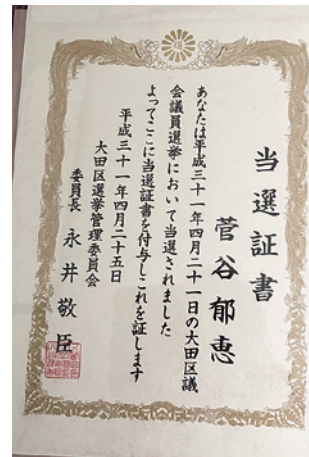 当選証書
菅谷郁恵
あなたは平成三十一年四月二十一日の大田区議
会議員選挙において当選されました
よってここに当選証書を付与しこれを証します
平成三十一年四月二十五日
大田区選挙管理委員会
委員長 永井敬臣